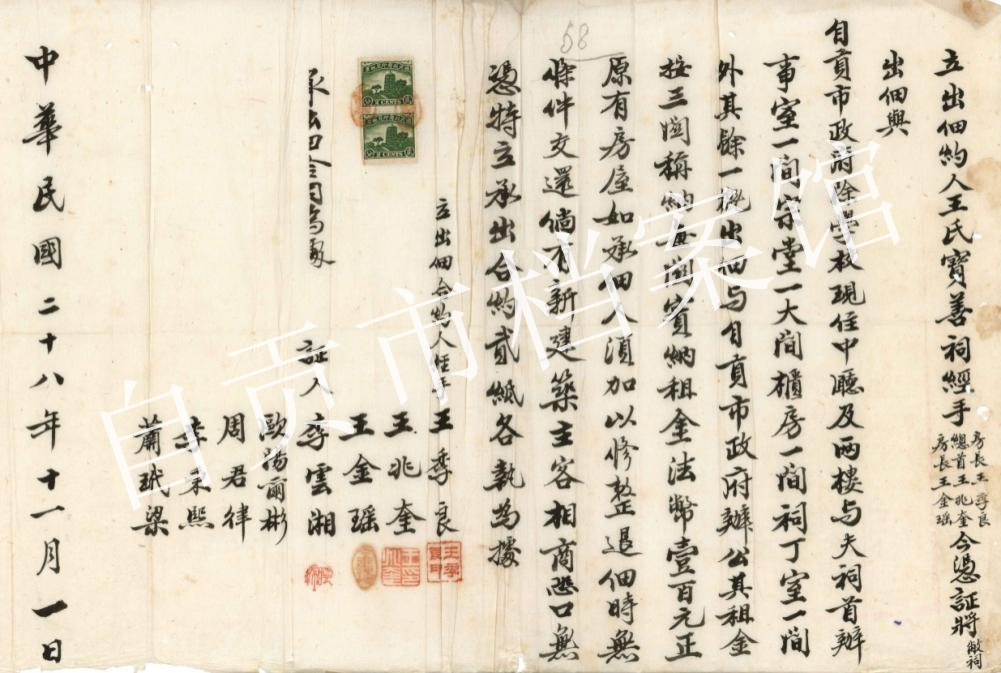 立出佃約人王氏寶善祠經手
房長王季良
總首王兆奎
房長王金瑶
今憑証將
敝祠
出佃與
自貢市政府除學校現住中廳及两樓與夫祠首辦
事室一間宗堂一大間櫃房一間祠丁室一間
外其餘一概出佃与自貢市政府辦公其租金
按三個稱納 納租金法幣壹百元正
原有房屋如承佃人須加以修整退佃時無
條件交還倘有新建築主客相商恐口無
憑特立承出合約貳紙各執為據
立出佃合約人經手
王季良
王兆奎
王金瑶
証人
李雲湘
歐陽爾彬
周君律
李 熙
蕭珉梁
58
中華民國二十八年十一月一日
自贡市档案馆